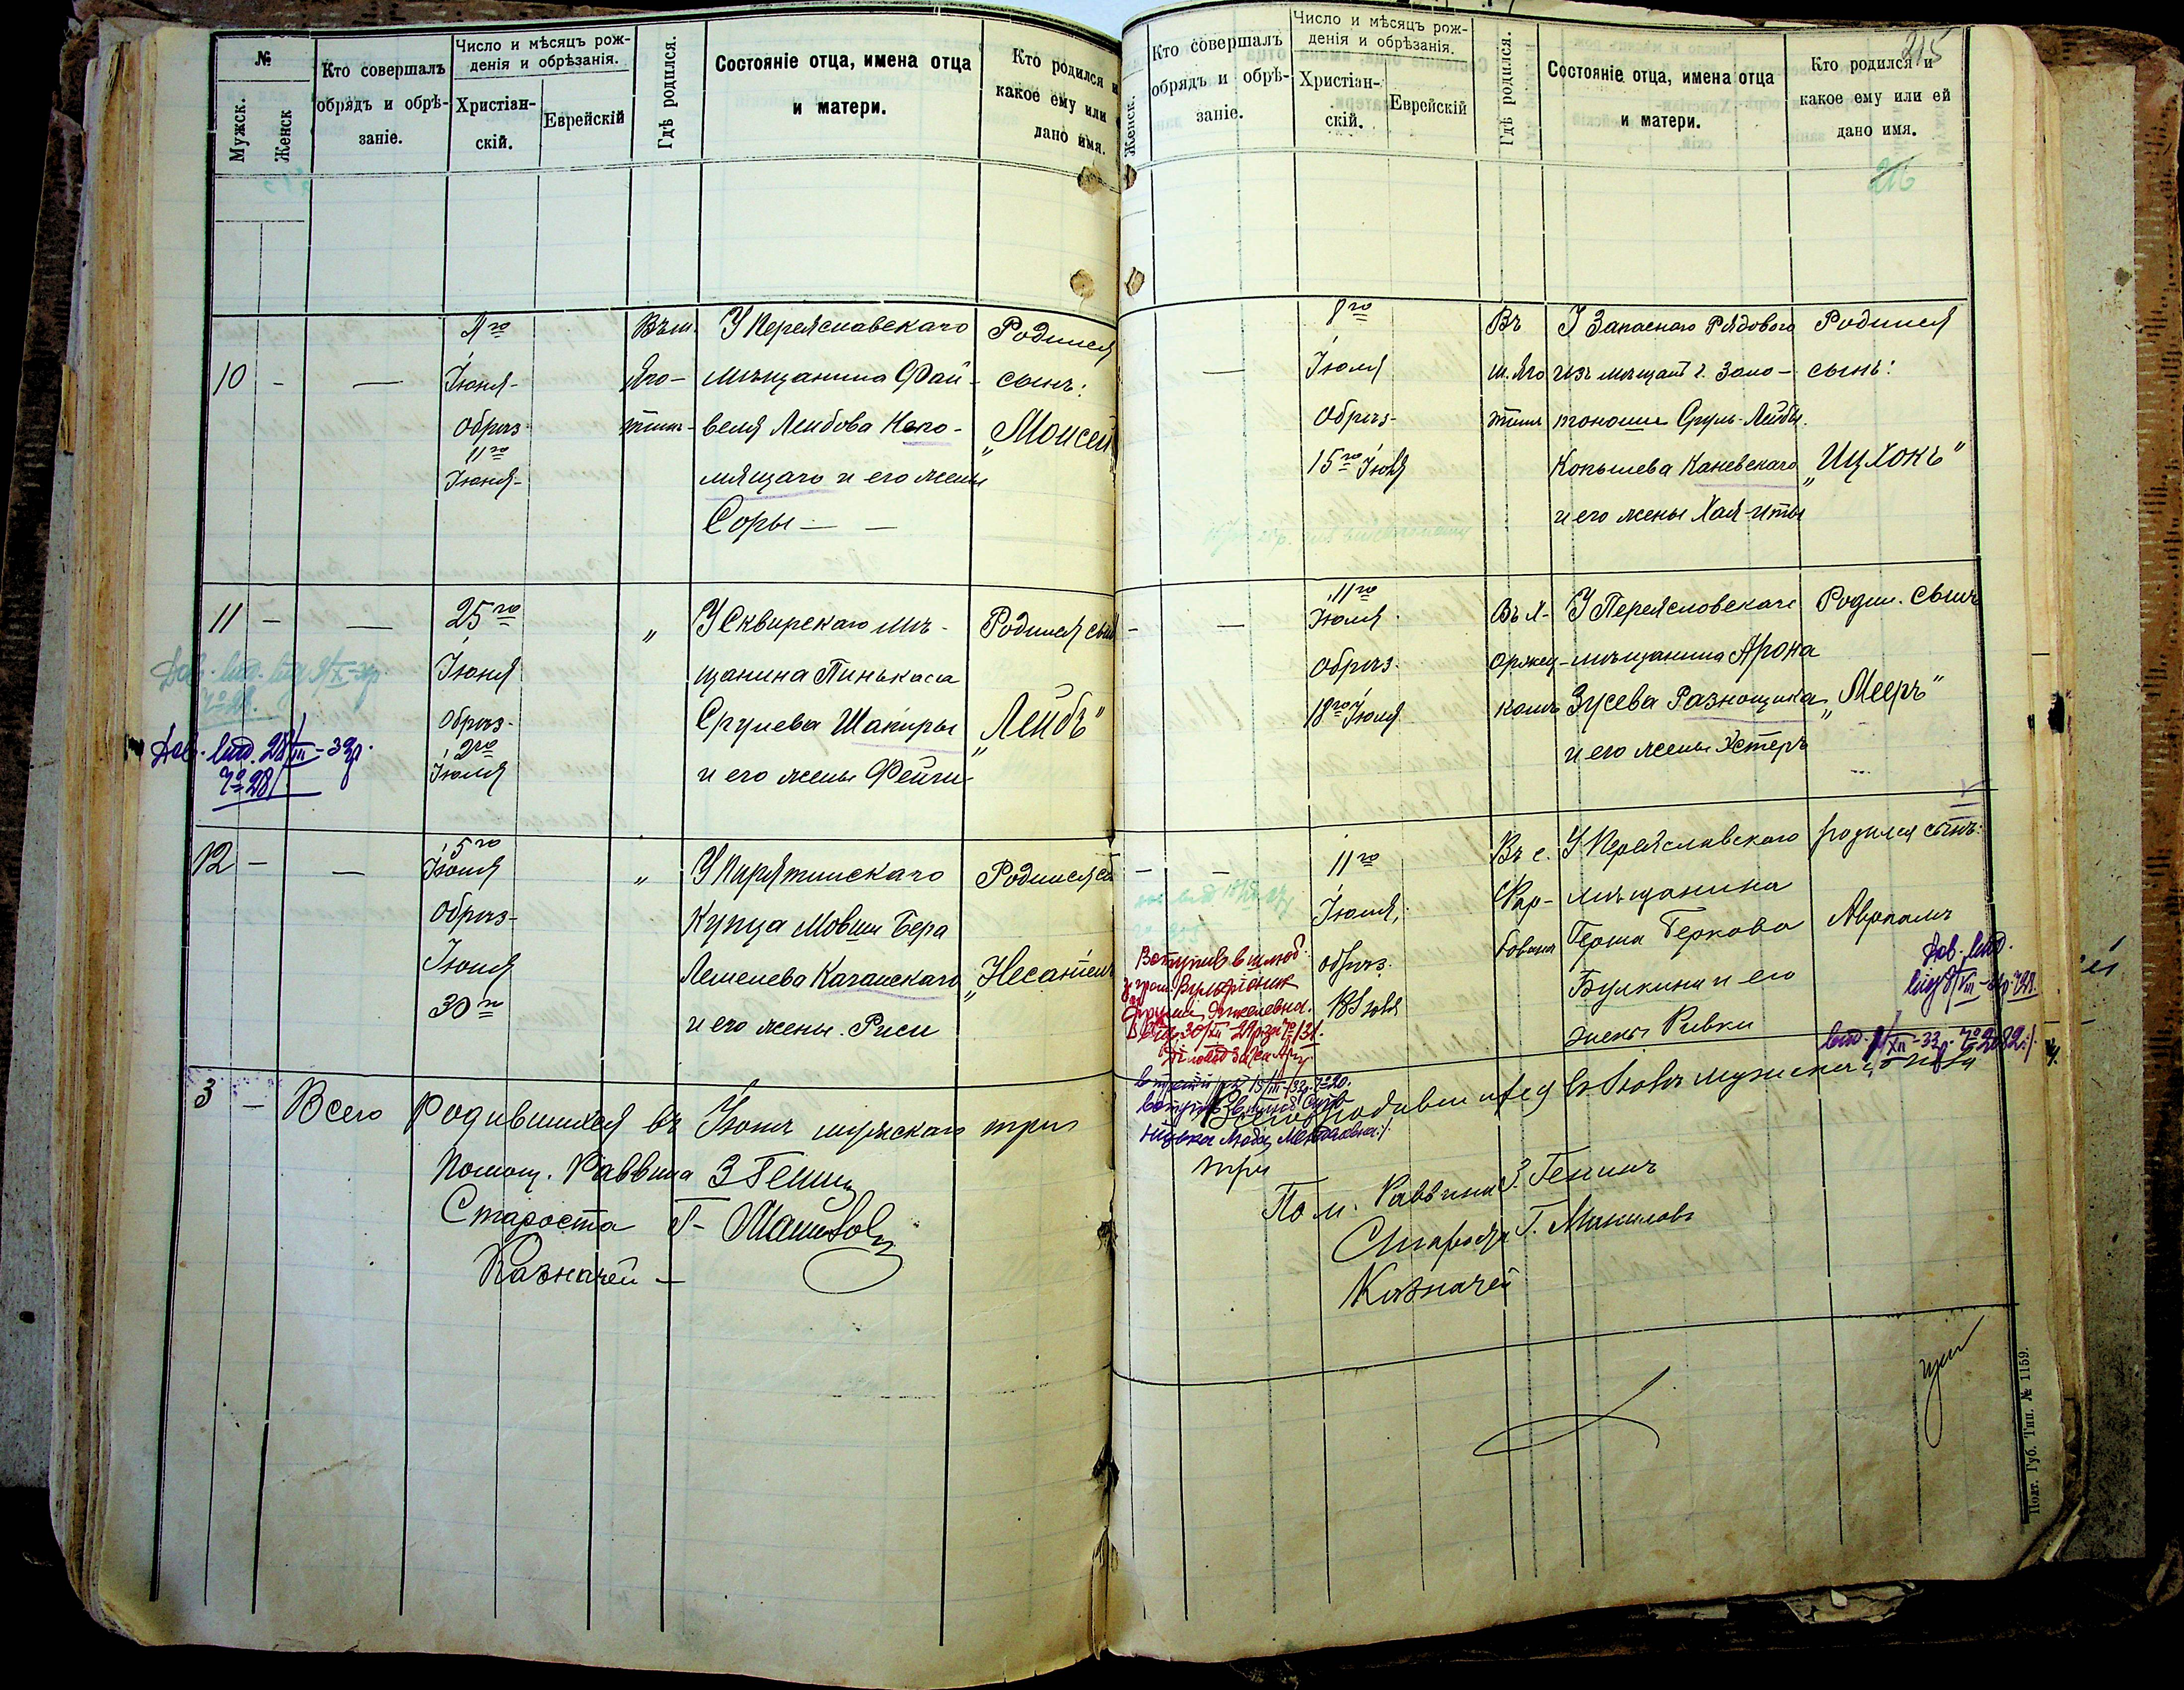 №
Мужск.
Женск
Кто совершалъ
обрядъ и обрѣ-
заніе.
Число и мѣсяцъ рож-
денія и обрѣзанія.
Христіан-
скій.
Еврейскій
Гдѣ родился.
Состояніе отца, имена отца
и матери.
Кто родился и
какое ему или
дано имя.
10 - —
Іюня
Обрѣз
11го
Іюня
Въ м.
Яго-
тинѣ
У Переяславскаго
мѣщанина Фай-
веля Лейбова Коло-
мящаго и его жены
Соры —
Родился
сынъ:
„Моисей
11 - —
25го
Іюня
Обрѣз-
2го
Іюля
„
У Сквирскаго мѣ-
щанина Пинькаса
Срулева Шапиры
и его жены Фейги
Родился сынъ
„Лейбъ“
Дов. вид. 28/III-33р.
№ 28
12 - —
5го
Іюня
Обрѣз-
Іюня
30го
„
У Пирятинскаго
Купца Мовши Бера
Лемелева Качанскаго
и его жены Риси
Родился
„Несанель
3 - Всего Родившихся въ Іюнѣ мужскаго три
Помощ. Раввина З Генинъ
Староста Г-
Казначей -
Женск.
Кто совершалъ
обрядъ и обрѣ-
заніе.
Число и мѣсяцъ рож-
денія и обрѣзанія.
Христіан-
скій.
Еврейскій
Гдѣ родился.
Состояніе отца, имена отца
и матери.
Кто родился и
какое ему или ей
дано имя.
215
216
—
8го
Іюля
Обрѣз-
15го Іюля
Въ
м. Яго
тинѣ
У Запаснаго Рядового
изъ мѣщанъ г. Золо-
тоноши Сруль-Лейбы
Копылева Каневскаго
и его жены Хая-Иты
Родился
сынъ:
„Ицхокъ“
- —
11го
Іюля
Обрѣз.
18го Іюля
Въ Х-
оржев-
комъ
У Переясловскаго
мѣщанина Арона
Зусева Разнощика
и его жены Эстеръ
Родил. сынъ
„Мееръ“
- —
11го
Іюля,
обрѣз.
18 Іюля
Въ с.
У Переяславскаго
мѣщанина
Герша Беркова
Булкина и его
жены Ривки
родился сынъ:
Аврпамъ
Дов. вид.
Вступив в шлюб
Всего родившихся въ Іюлѣ мужскаго пола
три
Пом. Раввина З. Генинъ
Староста Г.
Казначей
Полт. Губ. Тип. № 1159.